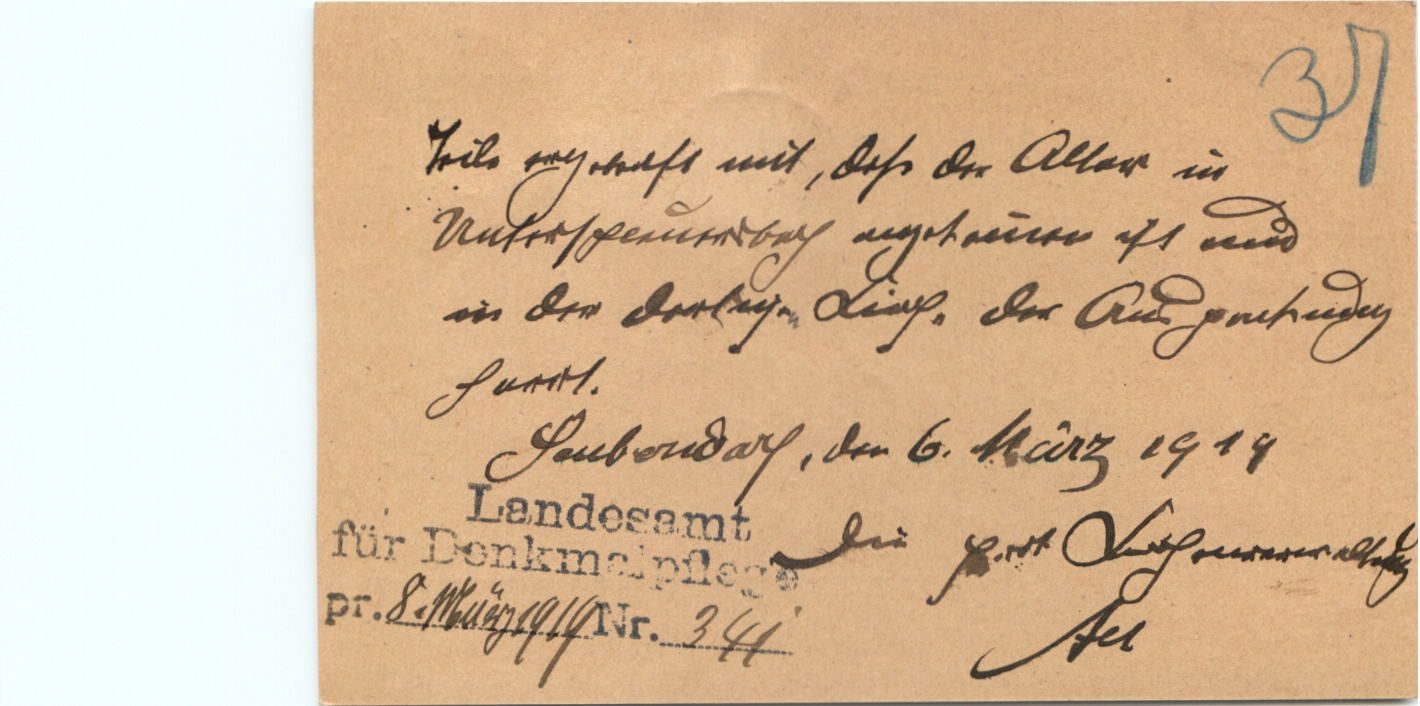 37
Teile ergebenst mit, daß der Altar in
Unterspleichfeld angekommen ist und
in der dortigen Kirche der Auspackung
harrt.
den 6. März 1919
Landesamt
für Denkmalpflege
pr. 8. März 1919 Nr. 341
Die Kirchenverwaltung